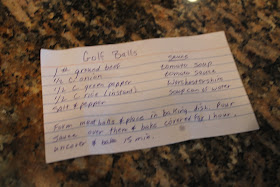 Golf Balls
1 # ground beef
1/2 C onion
1/2 C green pepper
1/2 C rice (instant)
Salt & pepper
sauce
tomato soup
tomato sauce
soup can of water
Form meat balls & place in baking dish. Pour
sauce over them & bake covered for 1 hour.
uncover & bake 15 min.